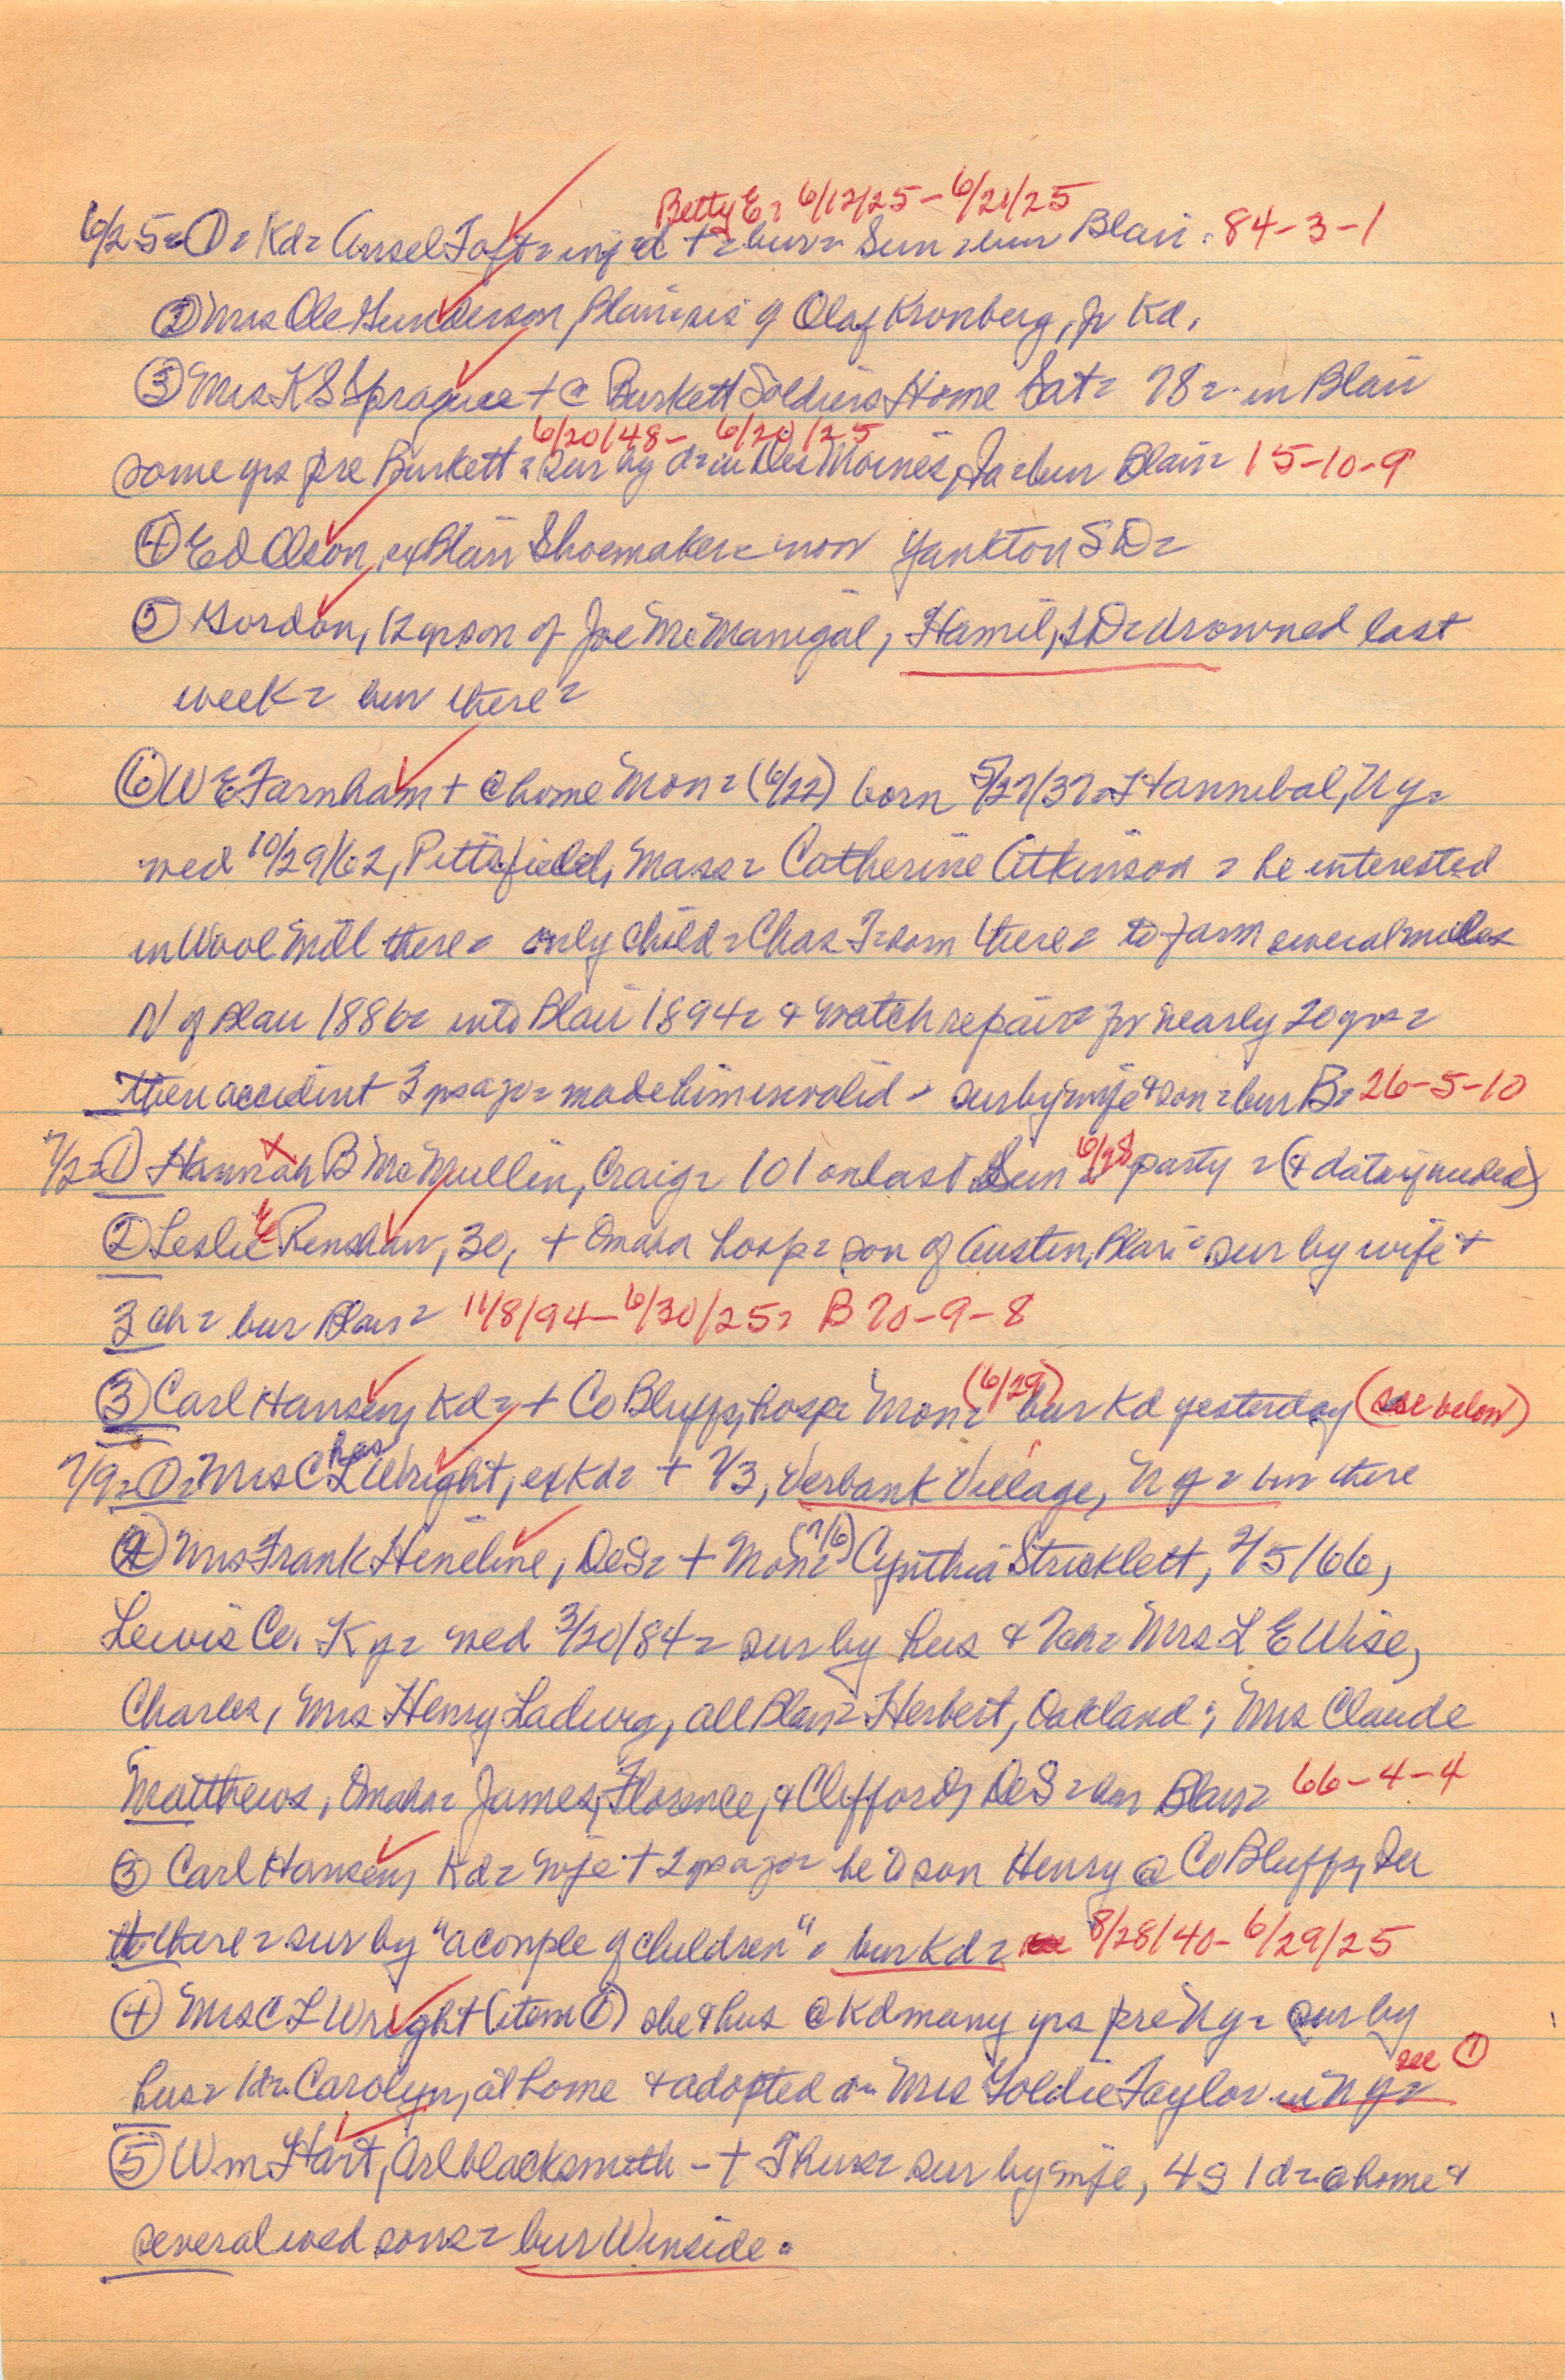 Betty E= 6/12/25 - 6/21/25
6/25= ① = Kd= Ansel Taft= inf d + = bur= Sun = bur Blair. 84-3-1
② Mrs Ole Gunderson, Blair= sis of Olaf Kronberg, Jr Kd.
③ Mrs K S Sprague + @ Burkett Soldiers Home Sat= 78= in Blair
6/20/48 - 6/20/25
some yrs pre Burkett = sur by d= in Des Moines, Ia= bur Blair= 15-10-9
④ Ed Olson, ex Blair Shoemaker = now Yankton S D=
⑤ Gordon, 12 yr son of Joe McManigal, Hamil, S D= drowned last
week= bur there=
⑥ W E Farnham + @ home Mon= (6/22) born 5/27/37= Hannibal, N Y=
wed 10/29/62, Pittsfield, Mass= Catherine Atkinson = he interested
in Wool Mill there= only child= Chas F= born there= to farm several miles
N of Blair 1886= into Blair 1894= & watch repair= for nearly 20 yrs=
then accident 3 yrs ago= made him invalid - sur by wife & son= bur B= 26-5-10
7/2= ① Hannah B McMullin, Craig= 101 on last Sun = 6/28 party = (& data if needed)
② Leslie E Renshaw, 30, + Omaha hosp= son of Austin, Blair= sur by wife +
3 ch= bur Blair= 11/8/94 - 6/30/25= B 70-9-8
③ Carl Hansen, Kd= + Co Bluffs, hosp= Mon= (6/29) bur Kd yesterday (see below)
7/9= ① = Mrs Chas L Wright, ex Kd= + 7/3, Verbank Village, N Y = bur there
② Mrs Frank Heneline, DeS= + Mon= (7/6) Cynthia Stricklett, 2/5/66,
Lewis Co. Ky= wed 3/20/84= sur by hus & 7 ch= Mrs L E Wise,
Charles, Mrs Henry Ladwig, all Blair= Herbert, Oakland; Mrs Claude
Matthews, Omaha= James, Florence, & Clifford, DeS= bur Blair= 66-4-4
③ Carl Hansen, Kd= wife + 2 yrs ago= he @ son Henry @ Co Bluffs,
there= sur by "a couple of children" = bur Kd= 8/28/40 - 6/29/25
④ Mrs C L Wright (item ①) she & hus @ Kd many yrs pre N Y= sur by
see ①
hus= 1 d= Carolyn, at home & adopted d= Mrs Goldie Taylor in N Y=
⑤ Wm Hart, Arl blacksmith - + Thurs= sur by wife, 4 S 1 d= @ home &
several wed sons= bur Winside.